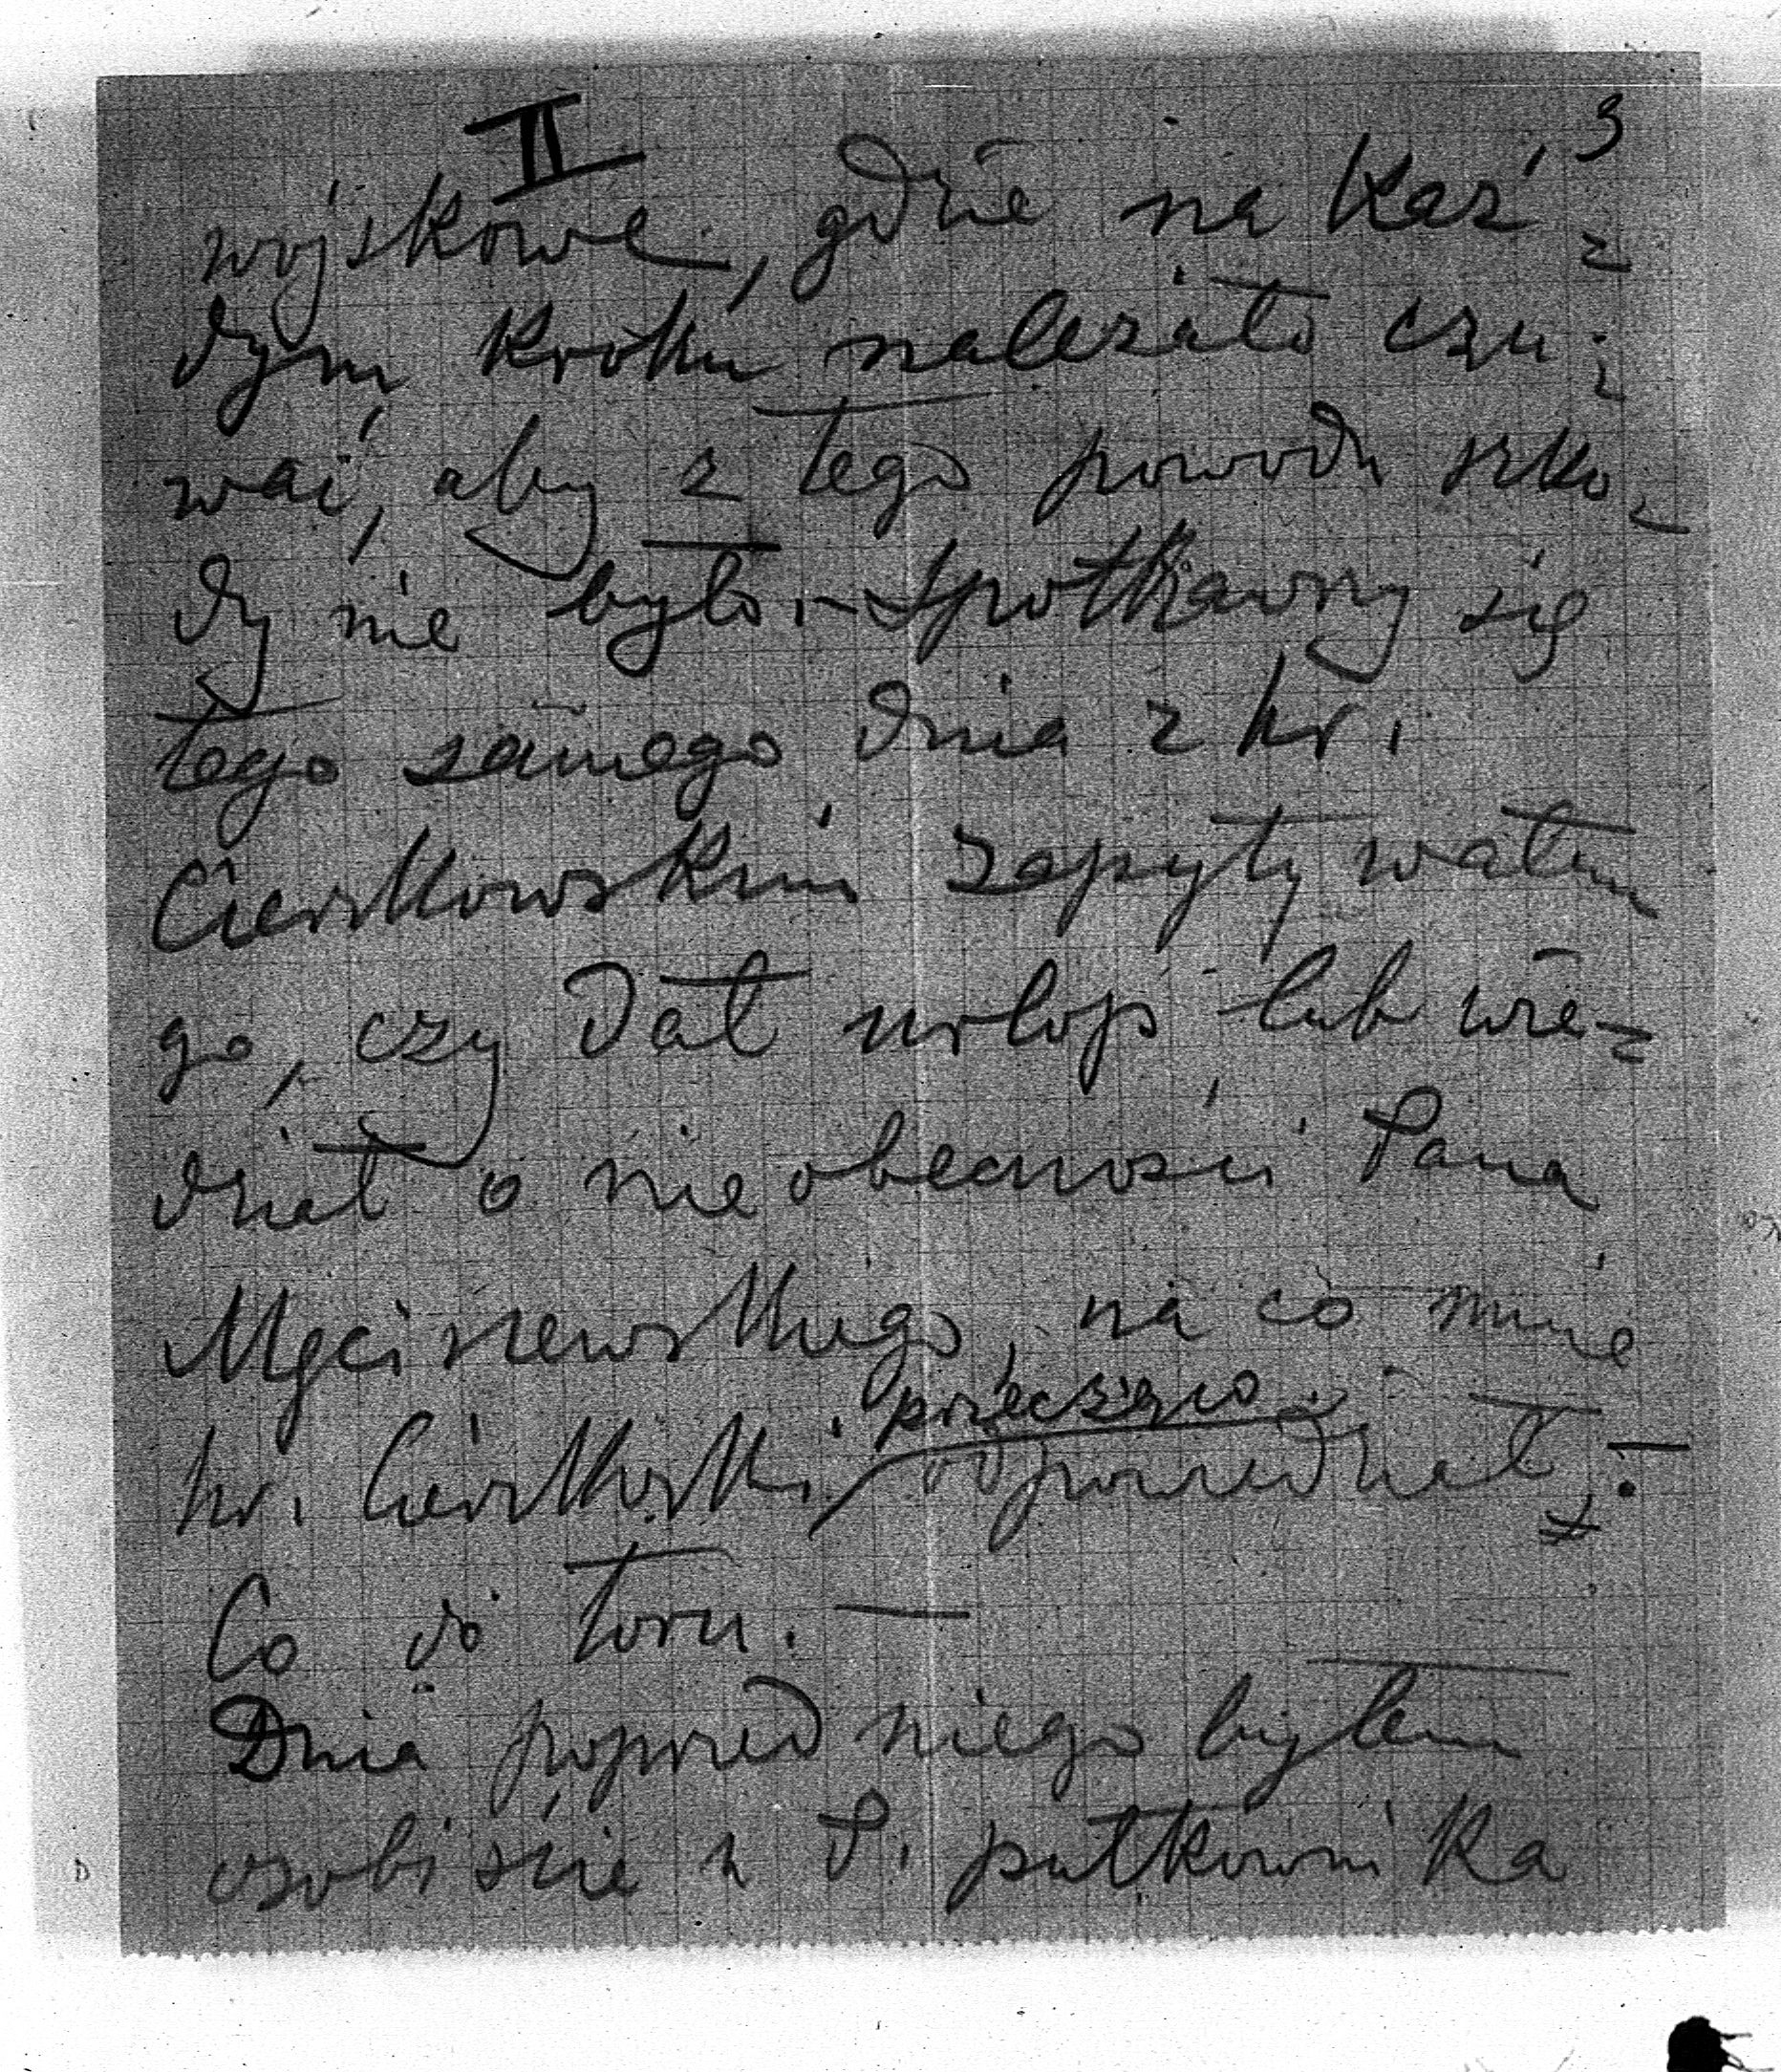 II
3
wojskowe, gdzie na każ-
dym kroku należało czu-
wać, aby z tego powodu szko-
dy nie było. - Spotkawszy się
tego samego dnia z hr.
Cieńskowskim zapytywałem
go, czy dał urlop lub wie-
dział o nieobecności Pana
Męciszewskiego, na co mnie
przecząco
hr. odpowiedział. -
Co do toru. —
Dnia poprzedniego byłem
osobiście u P. pułkownika